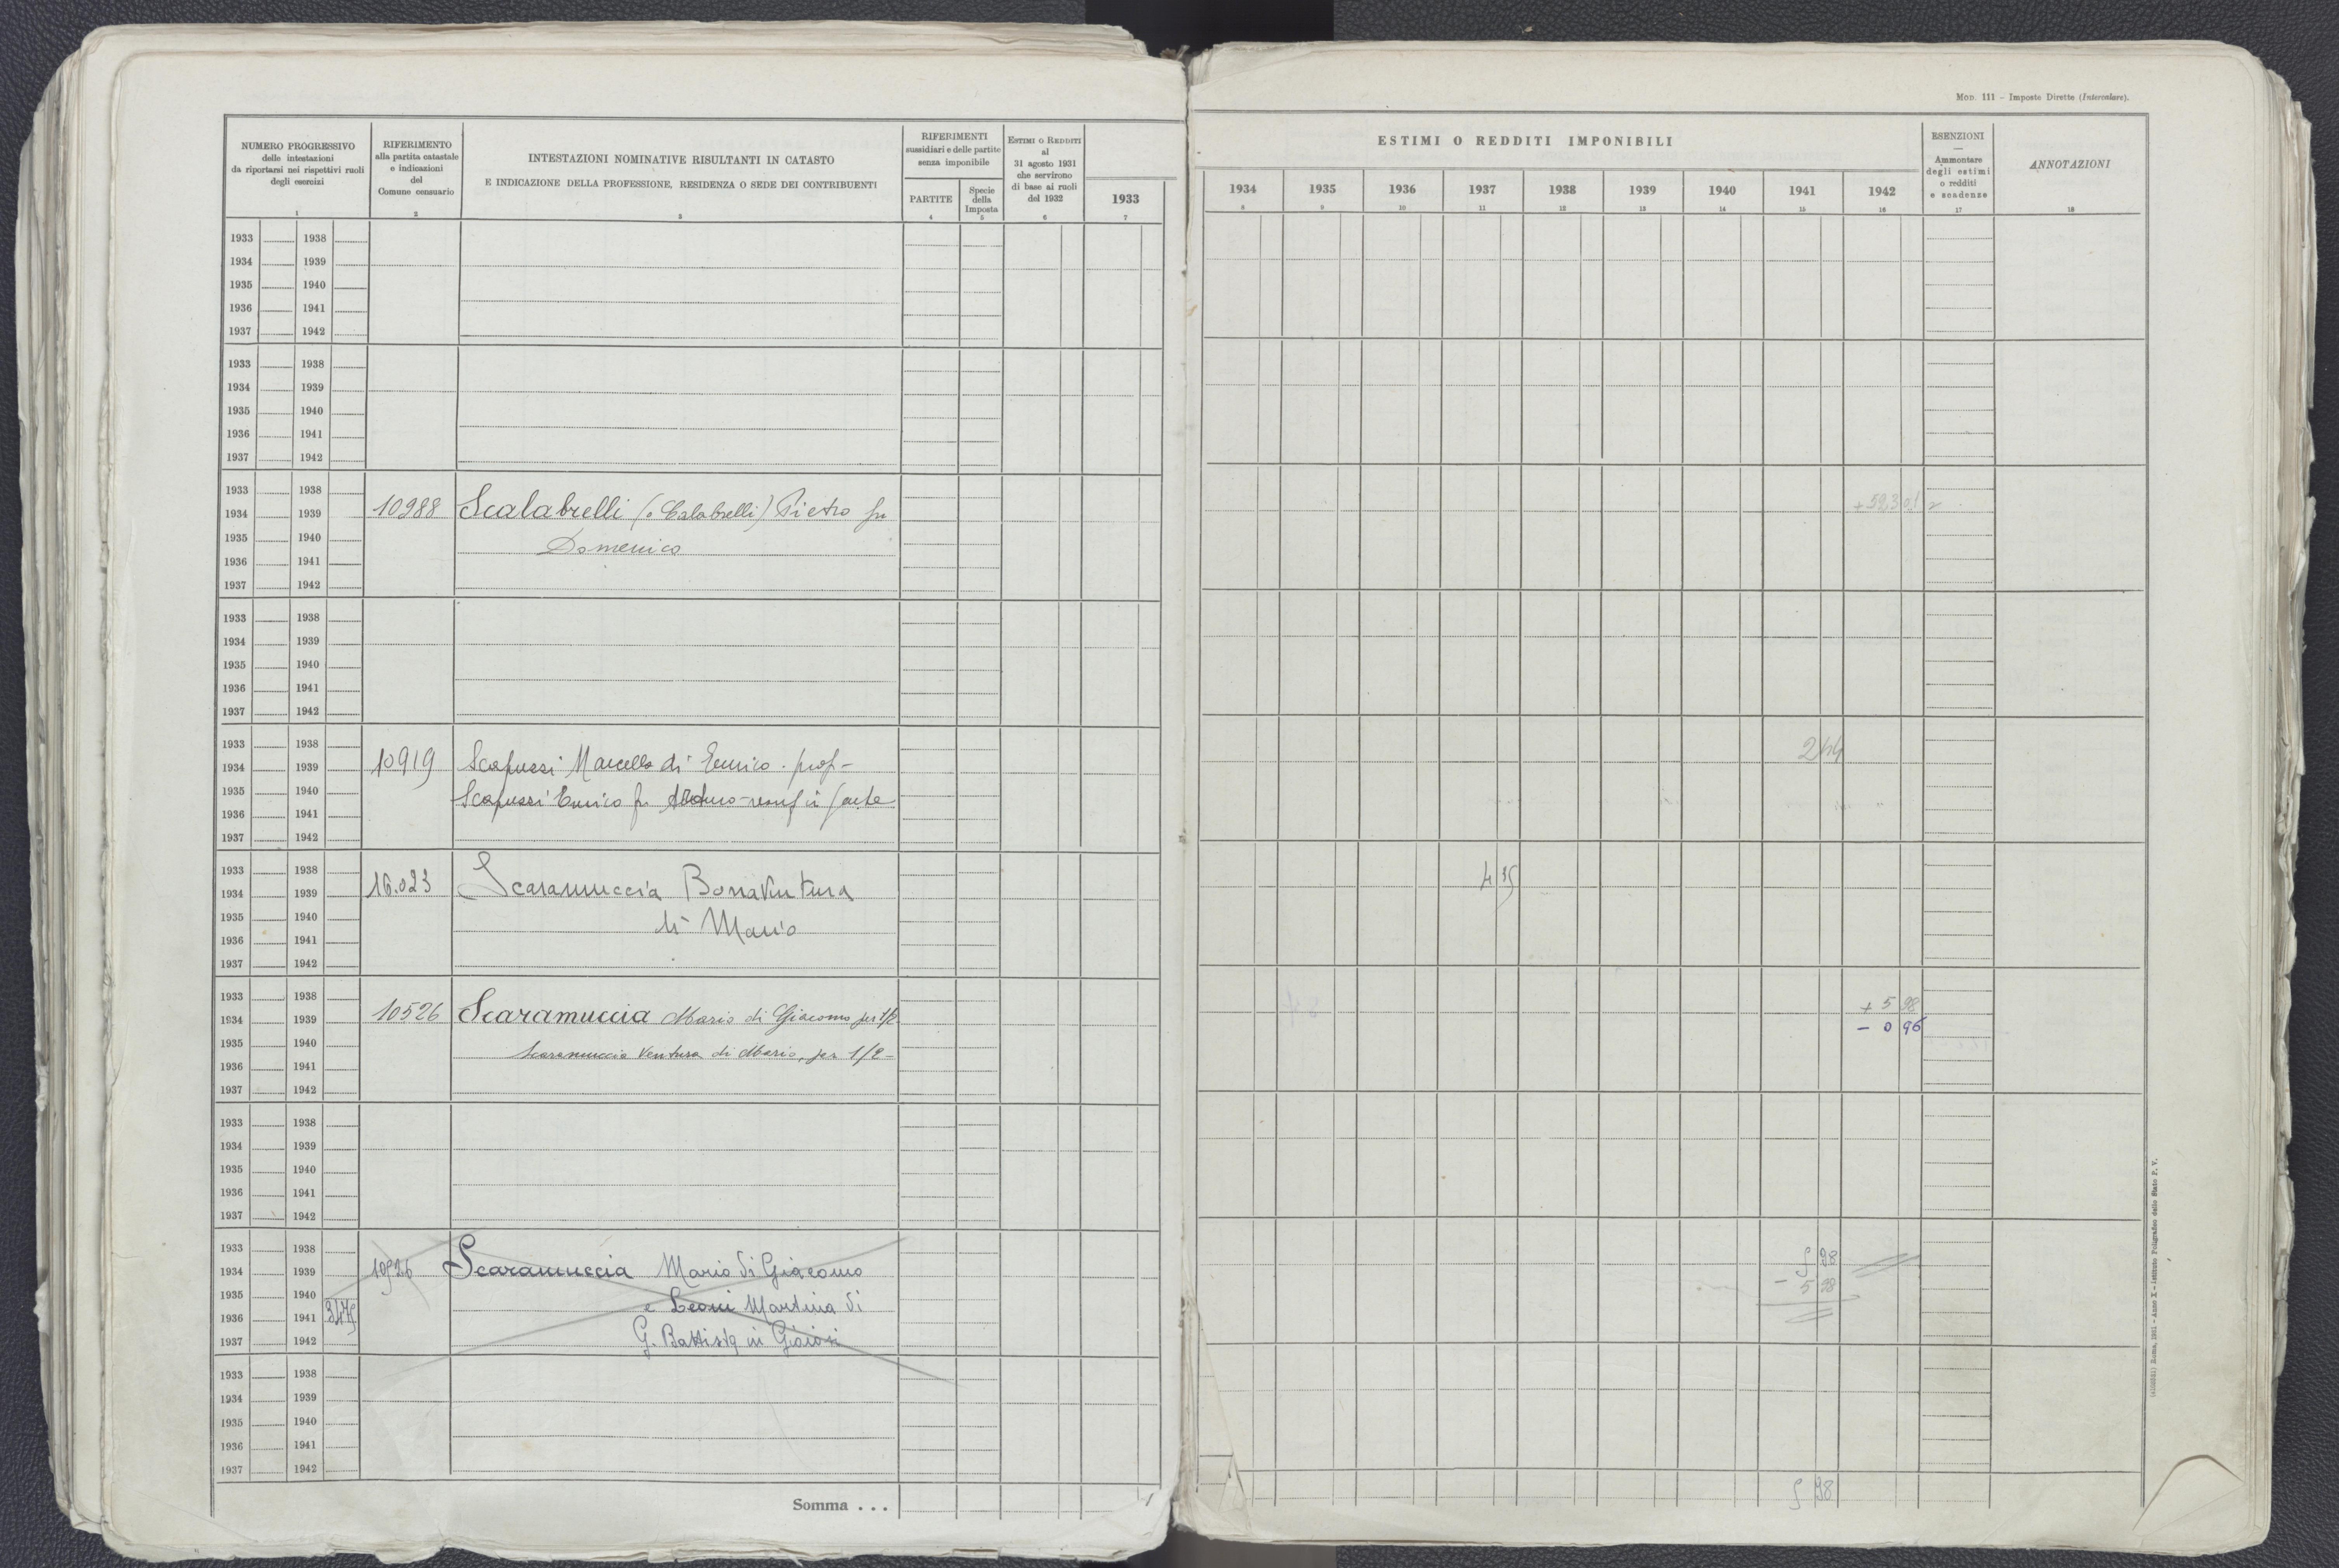 Mod. 111 - Imposte Dirette (Intercalare).
NUMERO PROGRESSIVO
delle intestazioni
da riportarsi nei rispettivi ruoli
degli esercizi
1
RIFERIMENTO
alla partita catastale
e indicazioni
del
Comune censuario
2
INTESTAZIONI NOMINATIVE RISULTANTI IN CATASTO
E INDICAZIONE DELLA PROFESSIONE, RESIDENZA O SEDE DEI CONTRIBUENTI
3
RIFERIMENTI
sussidiari e delle partite
senza imponibile
PARTITE
4
Specie
della
Imposta
5
ESTIMI O REDDITI
al
31 agosto 1931
che servirono
di base ai ruoli
del 1932
6
1933
7
ESTIMI O REDDITI IMPONIBILI
1934 1935 1936 1937 1938 1939 1940 1941 1942
8 9 10 11 12 13 14 15 16
ESENZIONI
—
Ammontare
degli estimi
o redditi
e scadenze
17
ANNOTAZIONI
18
1933 1938
1934 1939
1935 1940
1936 1941
1937 1942
1933 1938
1934 1939
1935 1940
1936 1941
1937 1942
1933 1938
1934 1939
1935 1940
1936 1941
1937 1942
10988 Scalabrelli (o Calabrelli) Pietro fu
Domenico
1933 1938
1934 1939
1935 1940
1936 1941
1937 1942
1933 1938
1934 1939
1935 1940
1936 1941
1937 1942
10919 Scapuzzi Marcello di Enrico - prop -
Scapuzzi Enrico fu Arturo - usuf in parte
244
1933 1938
1934 1939
1935 1940
1936 1941
1937 1942
16.023 Scaramuccia Bonaventura
di Mario
4 35
1933 1938
1934 1939
1935 1940
1936 1941
1937 1942
10526 Scaramuccia Mario di Giacomo per 1/2
Scaramuccia Ventura di Mario, per 1/2 -
+ 5 98
- 0 96
1933 1938
1934 1939
1935 1940
1936 1941
1937 1942
1933 1938
1934 1939
1935 1940
1936 1941
1937 1942
10526 Scaramuccia Mario di Giacomo
e Leoni Martina di
G. Battista in
5 98
- 5 98
1933 1938
1934 1939
1935 1940
1936 1941
1937 1942
Somma . . .
5 98
Roma, 1931 - Anno X - Istituto Poligrafico dello Stato P. V.